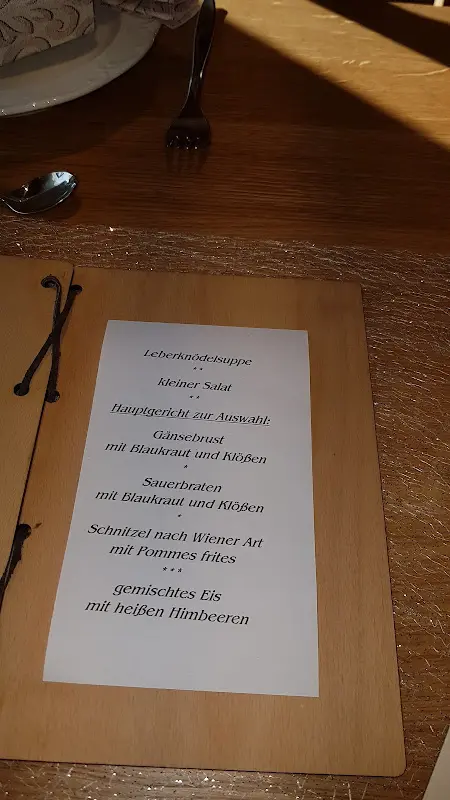 Leberknödelsuppe
**
kleiner Salat
**
Hauptgericht zur Auswahl:
Gänsebrust
mit Blaukraut und Klößen
*
Sauerbraten
mit Blaukraut und Klößen
*
Schnitzel nach Wiener Art
mit Pommes frites
***
gemischtes Eis
mit heißen Himbeeren